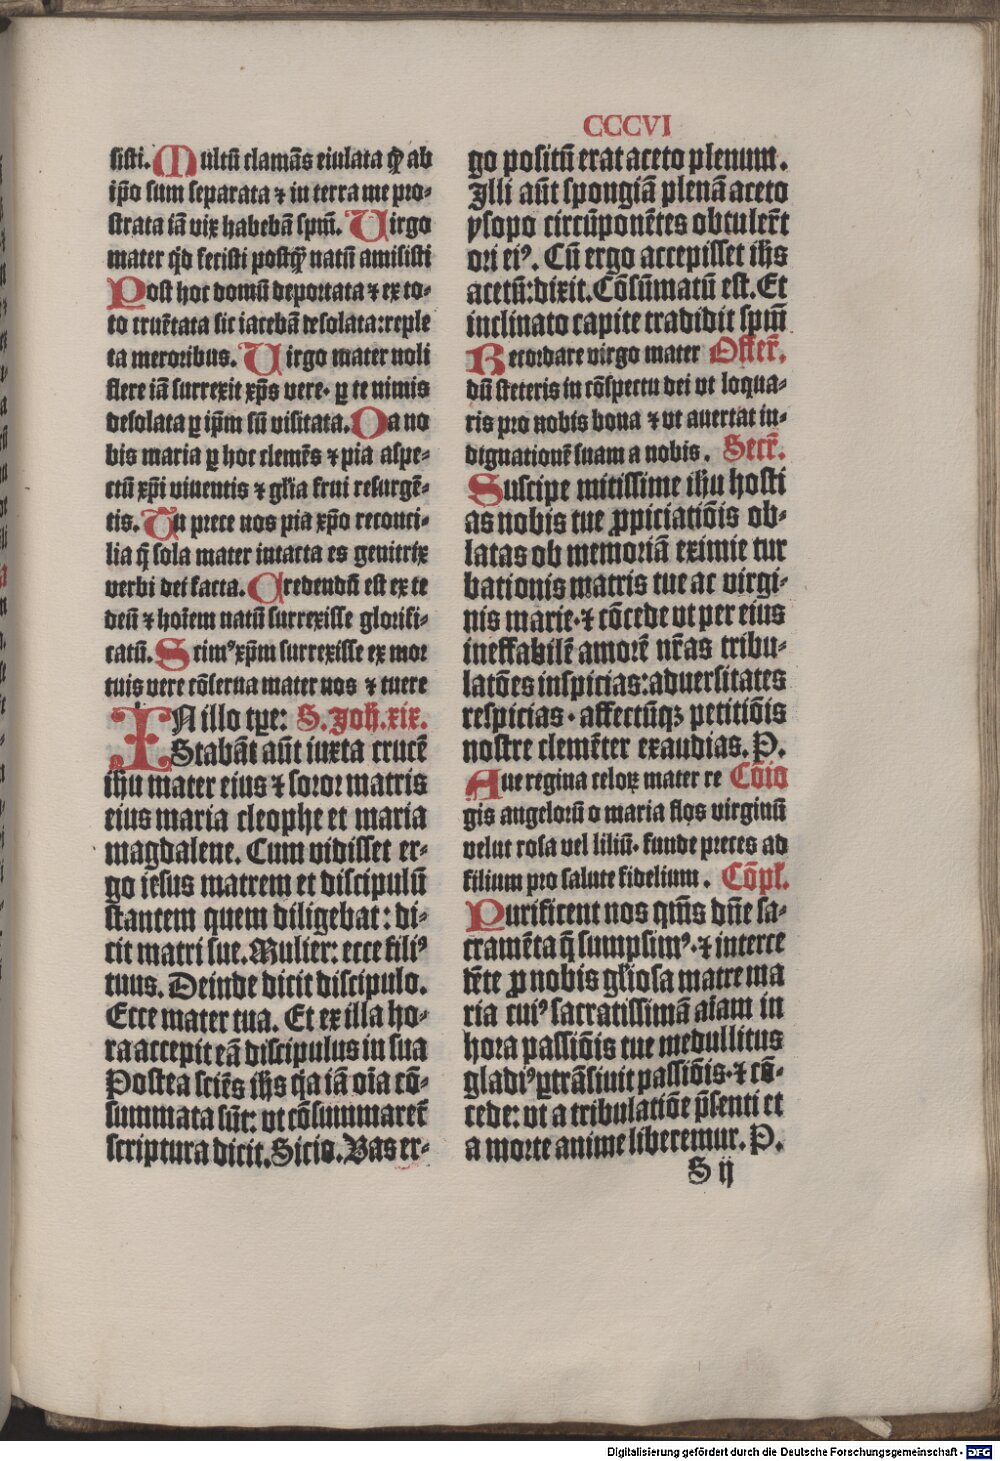 CCCVI
sisti. Multũ clamãs eiulata q̃ ab
ip̃o sum separata ⁊ in terra me pro-
strata iã vix habebã sp̃m. Virgo
mater q̃d fecisti postq̃ natũ amisisti
Post hoc domũ deportata ⁊ ex to-
to cruẽtata sic iacebã desolata: reple
ta meroribus. Virgo mater noli
flere iã surrexit xp̃s vere. ꝑ te nimis
desolata ꝑ ip̃m sũ visitata. Da no
bis maria ꝑ hoc clemẽs ⁊ pia aspe-
ctũ xp̃i viuentis ⁊ gl̃ia frui resurgẽ-
tis. Tu prece nos pia xp̃o reconci-
lia q̃ sola mater intacta es genitrix
verbi dei facta. Credendũ est ex te
deũ ⁊ hoĩem natũ surrexisse glorifi-
catũ. Scimꝰ xp̃m surrexisse ex mor
tuis vere cõserua mater nos ⁊ tuere
IN illo tp̃e: S. Joh. xix.
Stabãt aũt iuxta crucẽ
ihũ mater eius ⁊ soror matris
eius maria cleophe et maria
magdalene. Cum vidisset er-
go iesus matrem et discipulũ
stantem quem diligebat: di-
cit matri sue. Mulier: ecce filiꝰ
tuus. Deinde dicit discipulo.
Ecce mater tua. Et ex illa ho-
ra accepit eã discipulus in sua
Postea sciẽs ihs q̃a iã oĩa cõ-
summata sũt: vt cõsummaret̃
scriptura dicit. Sicio. Vas er-
go positũ erat aceto plenum.
Illi aũt spongiã plenã aceto
ysopo circũponẽtes obtulert̃
ori eiꝰ. Cũ ergo accepisset ihs
acetũ: dixit. Cõsũmatũ est. Et
inclinato capite tradidit sp̃m
Recordare virgo mater Offer̃.
dũ steteris in cõspectu dei vt loqua-
ris pro nobis bona ⁊ vt auertat in-
dignationẽ suam a nobis. Secr̃.
Suscipe mitissime ihũ hosti
as nobis tue ꝓpiciatiõis ob-
latas ob memoriã eximie tur
bationis matris tue ac virgi-
nis marie. ⁊ cõcede vt per eius
ineffabilẽ amorẽ nr̃as tribu-
latões inspicias: aduersitates
respicias. affectũqꝫ petitiõis
nostre clemẽter exaudias. P.
Aue regina celoꝝ mater re Cõio
gis angelorũ o maria flos virginũ
velut rosa vel liliũ. funde preces ad
filium pro salute fidelium. Cõpl̃.
Purificent nos qm̃s dñe sa-
cramẽta q̃ sumpsimꝰ. ⁊ interce
dẽte ꝓ nobis gl̃iosa matre ma
ria cuiꝰ sacratissimã aĩam in
hora passiõis tue medullitus
gladiꝰ ꝑtrãsiuit passiõis. ⁊ cõ-
cede: vt a tribulatiõe p̃senti et
a morte anime liberemur. P.
S ij
Digitalisierung gefördert durch die Deutsche Forschungsgemeinschaft - DFG